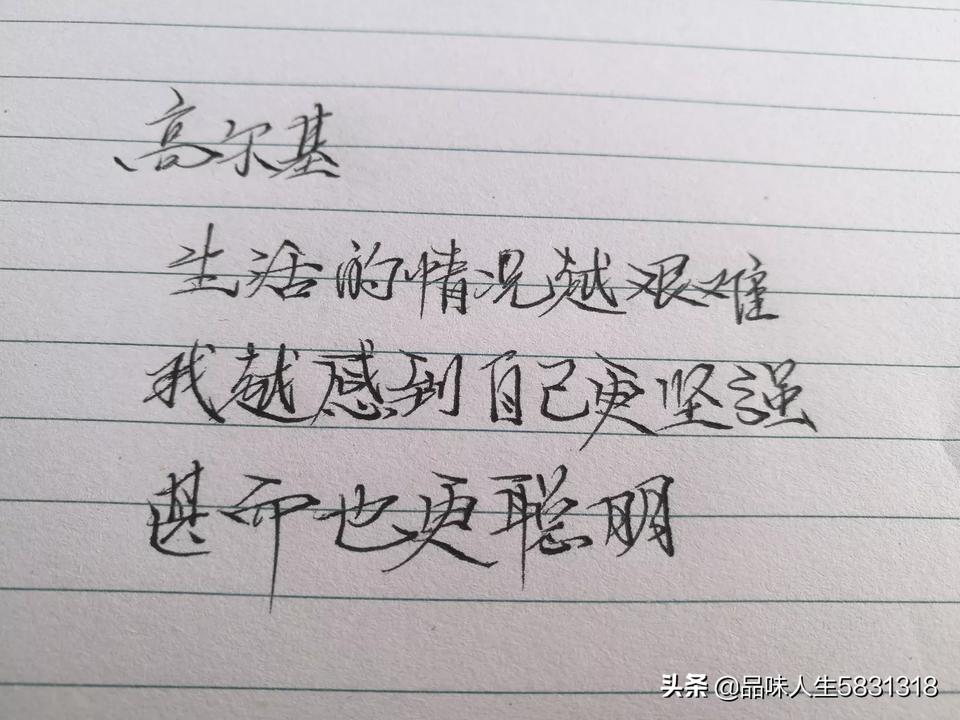 高尔基
生活的情况越艰难
我越感到自己更坚强
甚而也更聪明
头条 @品味人生5831318